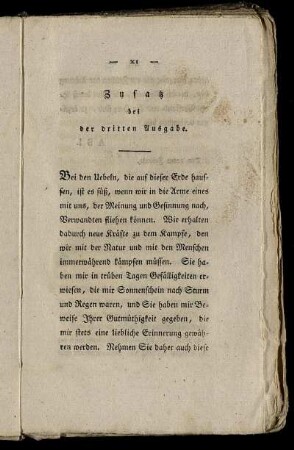 — XI —
Zusatz
bei
der dritten Ausgabe.
Bei den Uebeln, die auf dieser Erde haus-
sen, ist es süß, wenn wir in die Arme eines
mit uns, der Meinung und Gesinnung nach,
Verwandten fliehen können. Wir erhalten
dadurch neue Kräfte zu dem Kampfe, den
wir mit der Natur und mit den Menschen
immerwährend kämpfen müssen. Sie ha-
ben mir in trüben Tagen Gefälligkeiten er-
wiesen, die mir Sonnenschein nach Sturm
und Regen waren, und Sie haben mir Be-
weise Ihrer Gutmüthigkeit gegeben, die
mir stets eine liebliche Erinnerung gewäh-
ren werden. Nehmen Sie daher auch diese